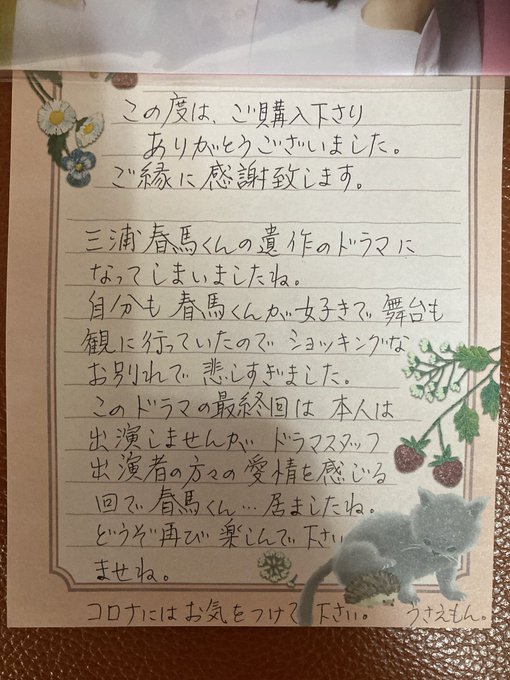 この度は、ご購入下さり
ありがとうございました。
ご縁に感謝致します。
三浦春馬くんの遺作のドラマに
なってしまいましたね。
自分も 春馬くんが好きで 舞台も
観に行っていたので ショッキングな
お別れで 悲しすぎました。
このドラマの最終回は 本人は
出演しませんが ドラマスタッフ
出演者の方々の愛情を感じる
回で春馬くん…居ましたね。
どうぞ再び楽しんで下さい
ませね。
コロナにはお気をつけて下さい。 うさえもん。